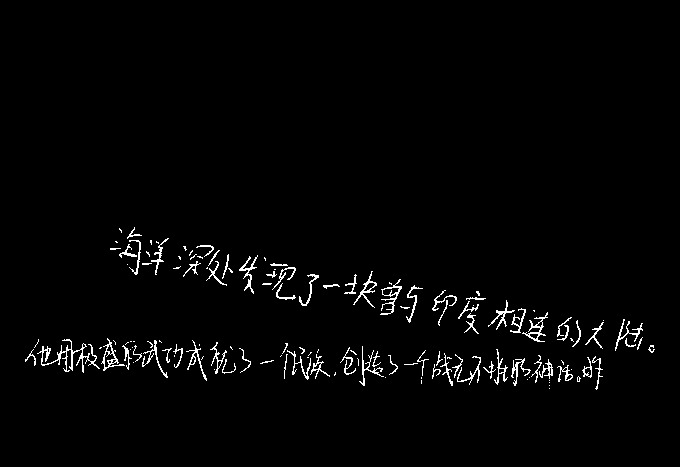 海洋深处发现了一块曾与印度相连的大陆。
他用极盛的武功成就了一个民族，创造了一个战无不胜的神话。昨